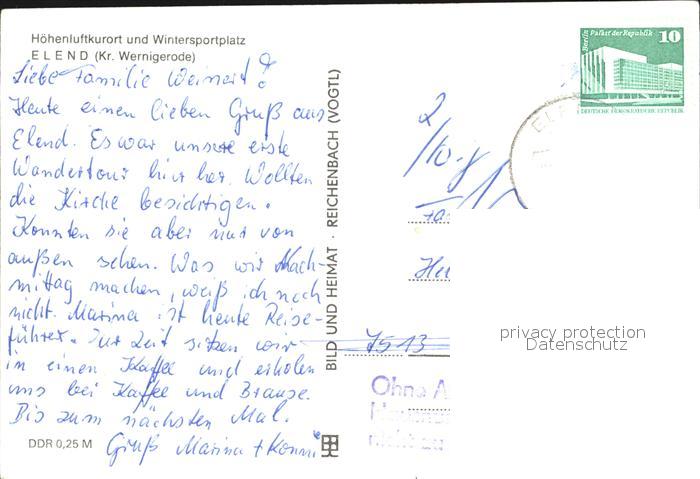 Höhenluftkurort und Wintersportplatz
ELEND (Kr. Wernigerode)
Liebe Familie Weinert!
Heute einen lieben Gruß aus
Elend. Es war unsere erste
Wandertour hier her. Wollten
die Kirche besichtigen.
Konnten sie aber nur von
außen sehen. Was wir Nach-
mittag machen, weiß ich noch
nicht. Marina ist heute Reise-
führer. Zur Zeit sitzen wir
in einen Kaffee und erholen
uns bei Kaffee und Brause.
Bis zum nächsten Mal.
Gruß Marina + Konni
DDR 0,25 M
BILD UND HEIMAT · REICHENBACH (VOGTL)
Berlin Palast der Republik 10
DEUTSCHE DEMOKRATISCHE REPUBLIK
Fa
7513
Ohne A
privacy protection
Datenschutz